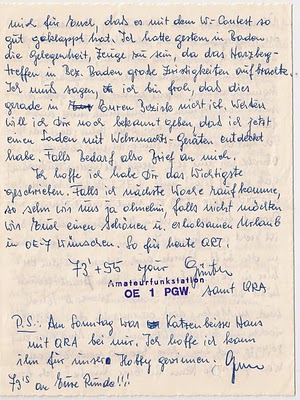 mich für Euch, dass es mit dem W-Contest so
gut geklappt hat. Ich hatte gestern in Baden
die Gelegenheit, Zeuge zu sein, da das Harzberg-
treffen in Bez. Baden große Zwistigkeiten aufbrachte.
Ich muß sagen, ich bin froh, daß dies
gerade in Euren Bezirk nicht ich. Weiters
will ich Dir noch bekannt geben, daß ich jetzt
einen Laden mit Wehrmachts-Geräten entdeckt
habe. Falls Bedarf also Brief an mich.
Ich hoffe ich habe Dir das Wichtigste
geschrieben. Falls ich nächste Woche rauf komme,
so sehn wir uns ja ohnehin, falls nicht möchten
wir Euch einen Schönen u. erholsamen Urlaub
in OE-7 wünschen. So für heute QRT.
73' + 55 your Günter
Amateurfunkstation
OE 1 PGW
samt QRA
P.S.: Am Sonntag war Katzenbeisser Hans
mit QRA bei mir. Ich hoffe ich kann
ihn für unser Hobby gewinnen.
73'is an Eure Runde!!!